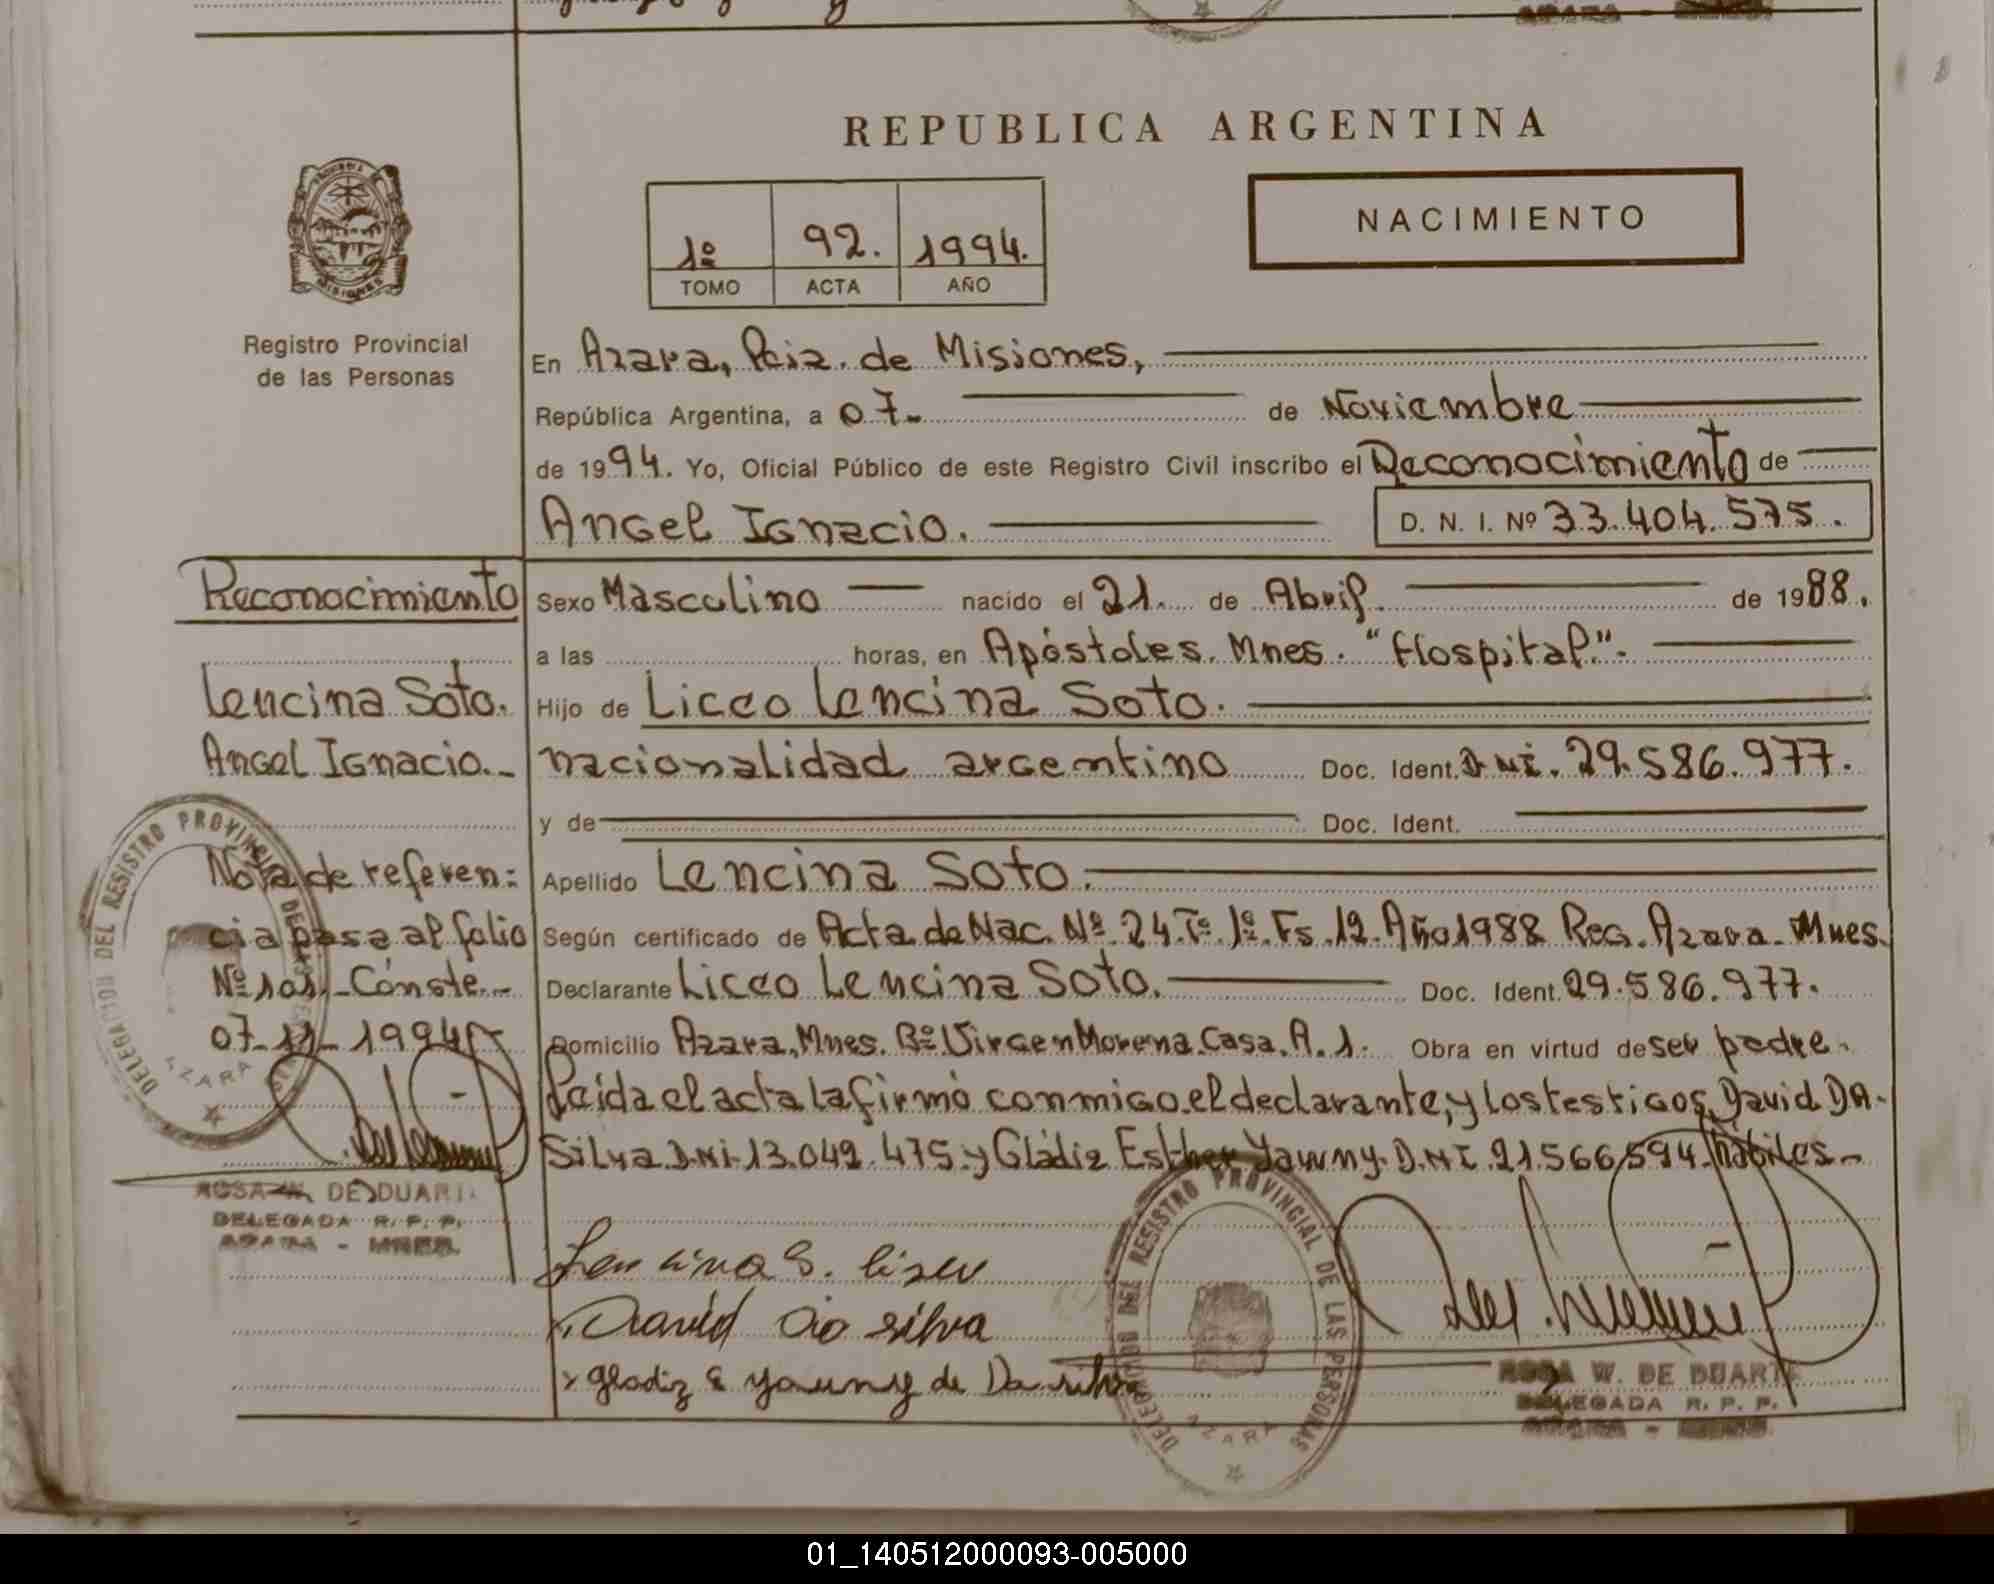 REPUBLICA ARGENTINA
NACIMIENTO
1º 92. 1994.
TOMO ACTA AÑO
MISIONES
Registro Provincial
de las Personas
En Azara, Pcia. de Misiones,
República Argentina, a 07- de Noviembre
de 1994. Yo, Oficial Público de este Registro Civil inscribo el Reconocimiento de
Angel Ignacio. D. N. I. Nº 33.404.575.
Reconocimiento
Lencina Soto.
Angel Ignacio.-
Sexo Masculino nacido el 21. de Abril. de 1988.
a las horas, en Apóstoles. Mnes. "Hospital".
Hijo de Liceo Lencina Soto.
nacionalidad argentino Doc. Ident. D.NI. 29.586.977.
y de Doc. Ident.
Apellido Lencina Soto.
Según certificado de Acta de Nac. Nº 24. Tº 1º. Fs. 12. Año 1988 Reg. Azara. Mnes.
Declarante Liceo Lencina Soto. Doc. Ident. 29.586.977.
Domicilio Azara, Mnes. Bº Virgen Morena. Casa. A. 1. Obra en virtud de ser padre.
Leída el acta la firmó conmigo el declarante, y los testigos, David DA
Silva D.NI. 13.042.475. y Gládiz Esther Yawny. D.NI. 21.566.594. hábiles.-
Nota de referen:
cia pasa al folio
Nº 101.- Conste.-
07-11-1994
DELEGACION DEL REGISTRO PROVINCIAL DE LAS PERSONAS
AZARA
ROSA W. DE DUARTE
DELEGADA R. P. P.
AZARA - MNES.
Lencina S. Liseu
David Da silva
Gladiz E yauny de Da silva
DELEGACION DEL REGISTRO PROVINCIAL DE LAS PERSONAS
AZARA
ROSA W. DE DUARTE
DELEGADA R. P. P.
AZARA - MNES.
01_140512000093-005000